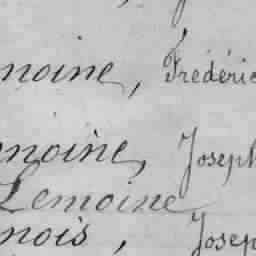 moine, Frédéric
moine, Joseph
Lemoine
nois, Josep